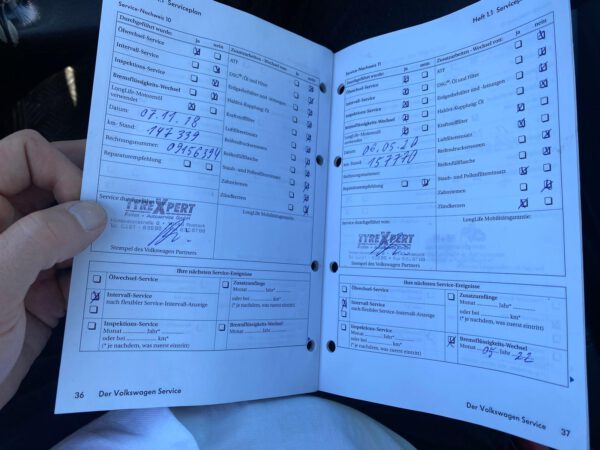 1.1 Serviceplan
Service-Nachweis 10
Durchgeführt wurde:
ja
nein
Ölwechsel-Service
Intervall-Service
Inspektions-Service
Bremsflüssigkeits-Wechsel
LongLife-Motorenöl
verwendet
Datum: 07.11.18
km-Stand: 147 339
Rechnungsnummer: 09156394
Reparaturempfehlung
Zusatzarbeiten - Wechsel vom:
ja
nein
ATF
DSG® Öl und Filter
Erdgasbehälter und -leitungen
Haldex-Kupplung: Öl
Kraftstofffilter
Luftfiltereinsatz
Reifendruckensoren
Reifenfüllflasche
Staub- und Pollenfiltereinsatz
Zahnriemen
Zündkerzen
LongLife Mobilitätsgarantie:
Service durchgeführt
TYREXPERT
Reifen + Autoservice GmbH
Stempel des Volkswagen Partners
Ihre nächsten Service-Ereignisse
Ölwechsel-Service
Intervall-Service
nach flexibler Service-Intervall-Anzeige
Inspektions-Service
Monat Jahr*
oder bei km*
(*je nachdem, was zuerst eintritt)
Zusatzumfänge
Monat Jahr*
oder bei km*
(*je nachdem, was zuerst eintritt)
Bremsflüssigkeits-Wechsel
Monat Jahr
36 Der Volkswagen Service
Heft 1.1 Serviceplan
Service-Nachweis 11
Durchgeführt wurde:
ja
nein
Ölwechsel-Service
Intervall-Service
Inspektions-Service
Bremsflüssigkeits-Wechsel
LongLife-Motorenöl
verwendet
Datum: 06.05.20
km-Stand: 157770
Rechnungsnummer:
Reparaturempfehlung
Zusatzarbeiten - Wechsel vom:
ja
nein
ATF
DSG® Öl und Filter
Erdgasbehälter und -leitungen
Haldex-Kupplung: Öl
Kraftstofffilter
Luftfiltereinsatz
Reifendrucksensoren
Reifenfüllflasche
Staub- und Pollenfiltereinsatz
Zahnriemen
Zündkerzen
LongLife Mobilitätsgarantie:
Service durchgeführt von:
TYREXPERT
Stempel des Volkswagen Partners
Ihre nächsten Service-Ereignisse
Ölwechsel-Service
Intervall-Service
nach flexibler Service-Intervall-Anzeige
Inspektions-Service
Monat Jahr*
oder bei km*
(*je nachdem, was zuerst eintritt)
Zusatzumfänge
Monat Jahr*
oder bei km*
(*je nachdem, was zuerst eintritt)
Bremsflüssigkeits-Wechsel
Monat 05 Jahr 22
Der Volkswagen Service 37